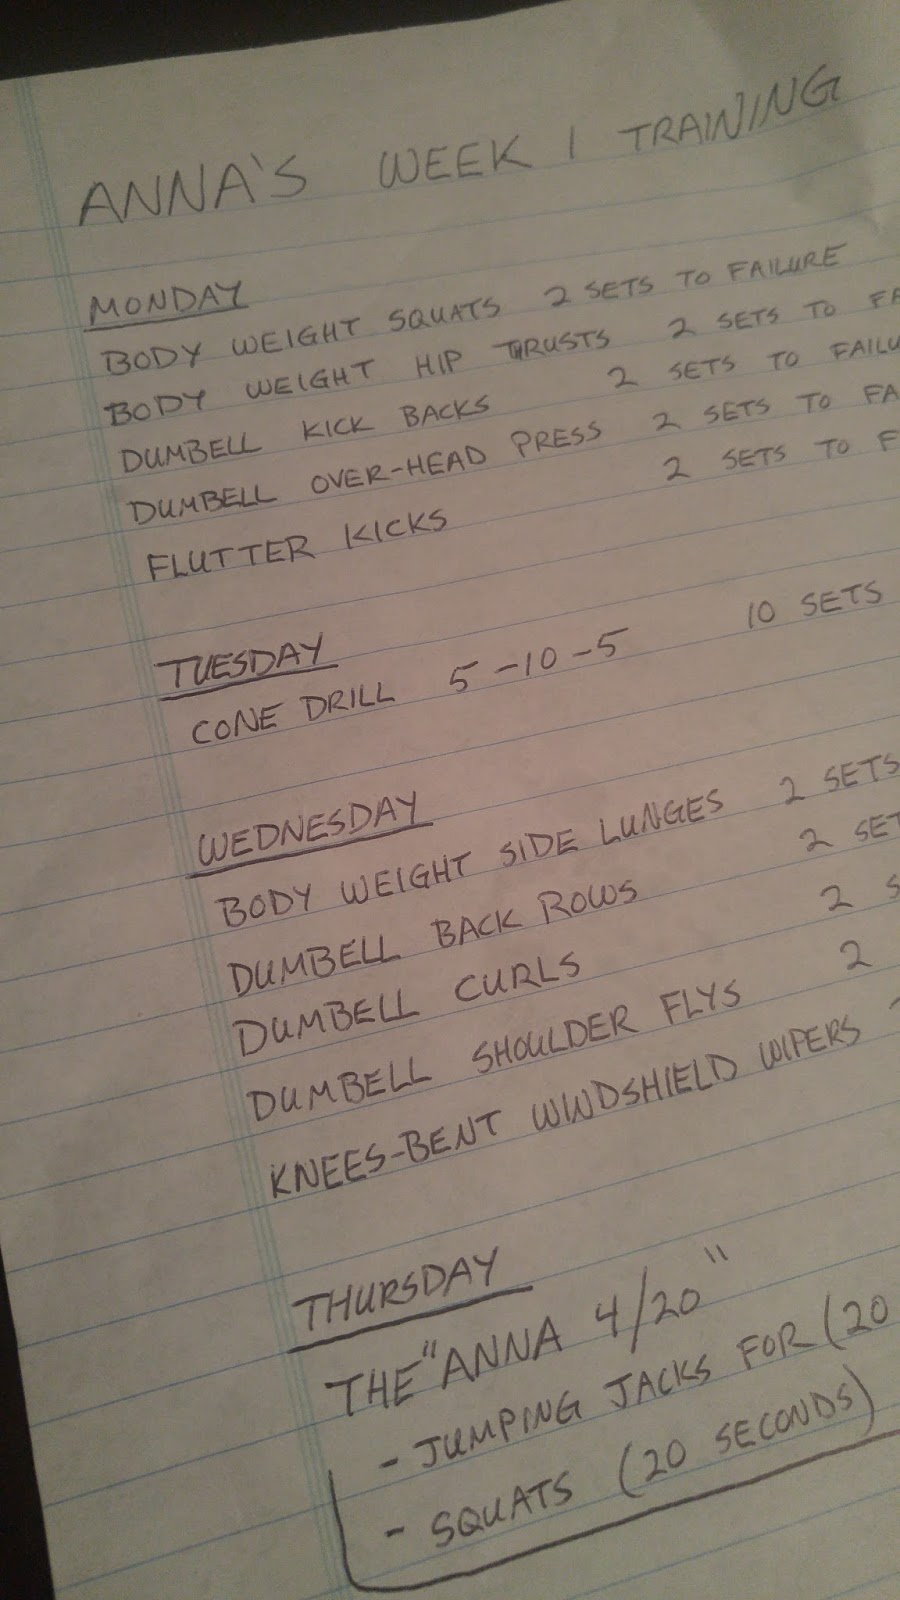 ANNA'S WEEK 1 TRAINING
MONDAY
BODY WEIGHT SQUATS 2 SETS TO FAILURE
BODY WEIGHT HIP THRUSTS 2 SETS TO FA
DUMBELL KICK BACKS 2 SETS TO FAILU
DUMBELL OVER-HEAD PRESS 2 SETS TO FA
FLUTTER KICKS 2 SETS TO F
TUESDAY
CONE DRILL 5-10-5 10 SETS
WEDNESDAY
BODY WEIGHT SIDE LUNGES 2 SETS
DUMBELL BACK ROWS 2 SET
DUMBELL CURLS 2 S
DUMBELL SHOULDER FLYS 2
KNEES-BENT WINDSHIELD WIPERS
THURSDAY
THE "ANNA 4/20"
- JUMPING JACKS FOR (20
- SQUATS (20 SECONDS)